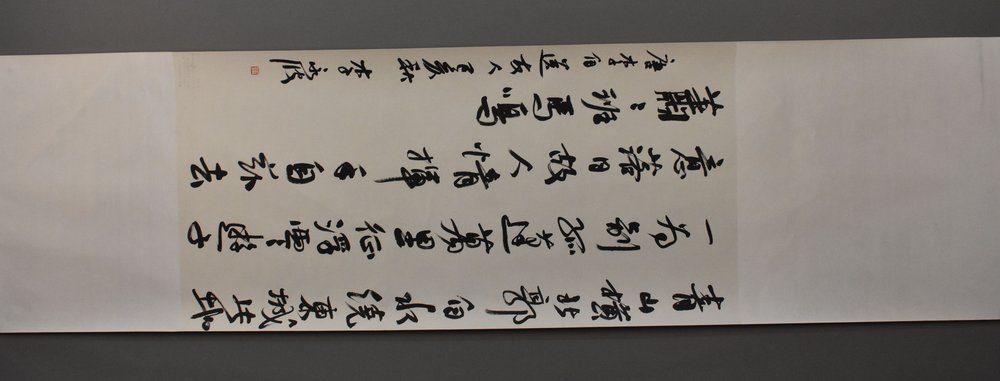 青山橫北郭白水繞東城此地
一为別孤蓬萬里征浮雲遊子
意落日故人情揮手自茲去
蕭〻班馬鳴
唐李白送友人 秋 李